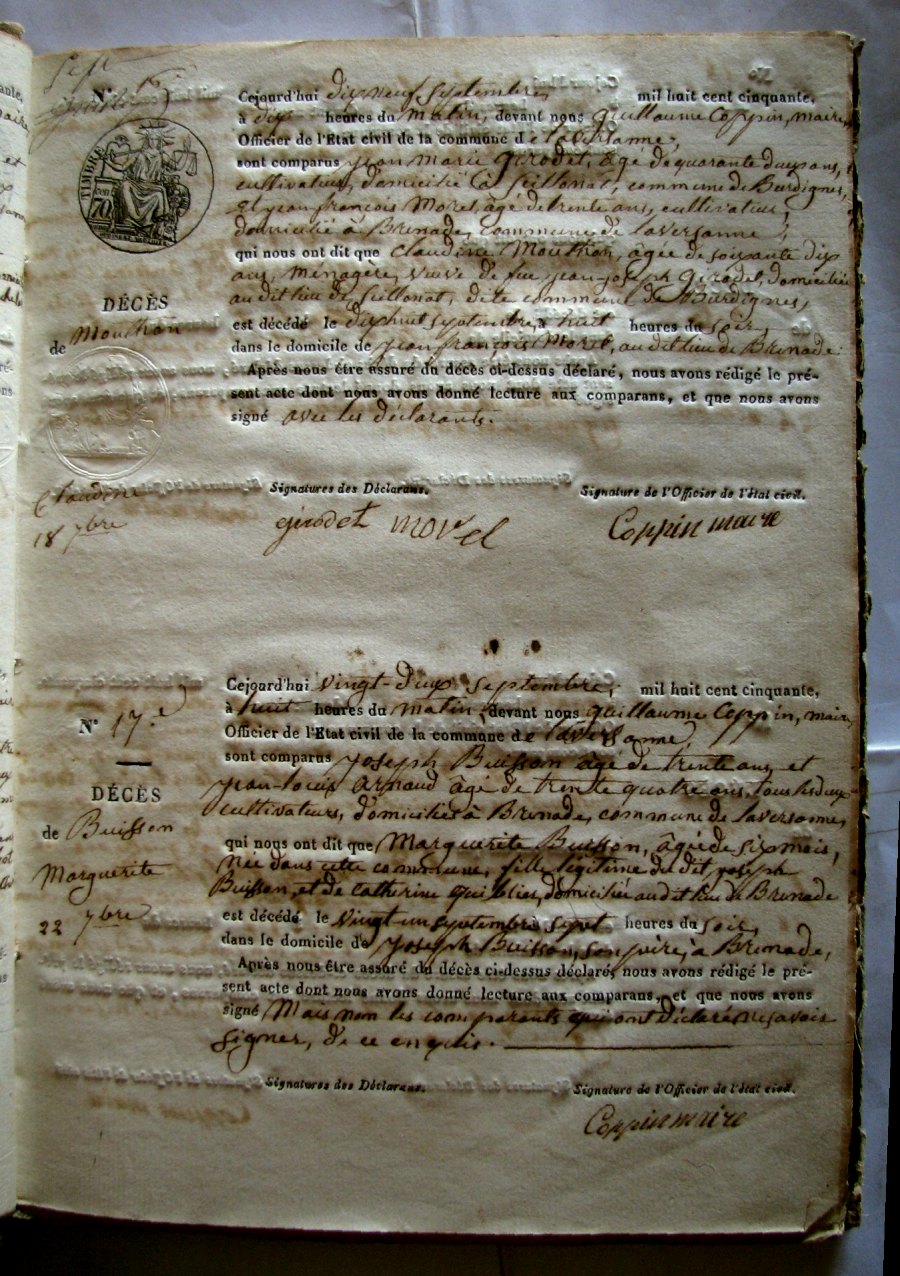 Sept
N° 16
TIMBRE
70
DÉCÈS
de Mouthon
Claudine
18 7bre
Cejourd'hui dix neuf Septembre, mil huit cent cinquante,
à dix heures du matin, devant nous Guillaume Coppin, maire,
Officier de l'Etat civil de la commune de Laversanne,
sont comparus Jean Marie Girodet, âgé de quarante deux ans,
cultivateur, domicilié à Seillonat, commune de Burdignes,
et Jean françois Morel, âgé de trente ans, cultivateur,
domicilié à Brenade, Commune de Laversanne,
qui nous ont dit que Claudine Mouthon, âgée de soixante dix
ans, Ménagère, veuve de feu Jean-Joseph Girodet, domiciliée
au dit lieu de Seillonat, dite commune de Burdignes,
est décédé le dix huit septembre, à huit heures du soir,
dans le domicile de Jean françois Morel, au dit lieu de Brenade.
Après nous être assuré du décès ci-dessus déclaré, nous avons rédigé le pré-
sent acte dont nous avons donné lecture aux comparans, et que nous avons
signé avec les déclarants.
Signatures des Déclarans. Signature de l'Officier de l'état civil.
girodet morel Coppin maire
N° 17.e
DÉCÈS
de Buisson
Marguerite
22 7bre
Cejourd'hui vingt-deux Septembre, mil huit cent cinquante,
à huit heures du matin, devant nous Guillaume Coppin, maire,
Officier de l'Etat civil de la commune de Laversanne,
sont comparus Joseph Buisson âgé de trente ans, et
Jean-Louis Arnaud âgé de trente quatre ans, tous les deux
cultivateurs, domiciliés à Brenade, commune de Laversanne,
qui nous ont dit que Marguerite Buisson, âgée de six mois,
née dans cette commune, fille légitime du dit Joseph
Buisson, et de Catherine domiciliés au dit lieu de Brenade
est décédé le vingt-un septembre sept heures du soir,
dans le domicile de Joseph Buisson, son père, à Brenade,
Après nous être assuré du décès ci-dessus déclaré, nous avons rédigé le pré-
sent acte dont nous avons donné lecture aux comparans, et que nous avons
signé Mais non les comparants qui ont déclaré ne savoir
signer, de ce enquis.
Signatures des Déclarans. Signature de l'Officier de l'état civil.
Coppin maire